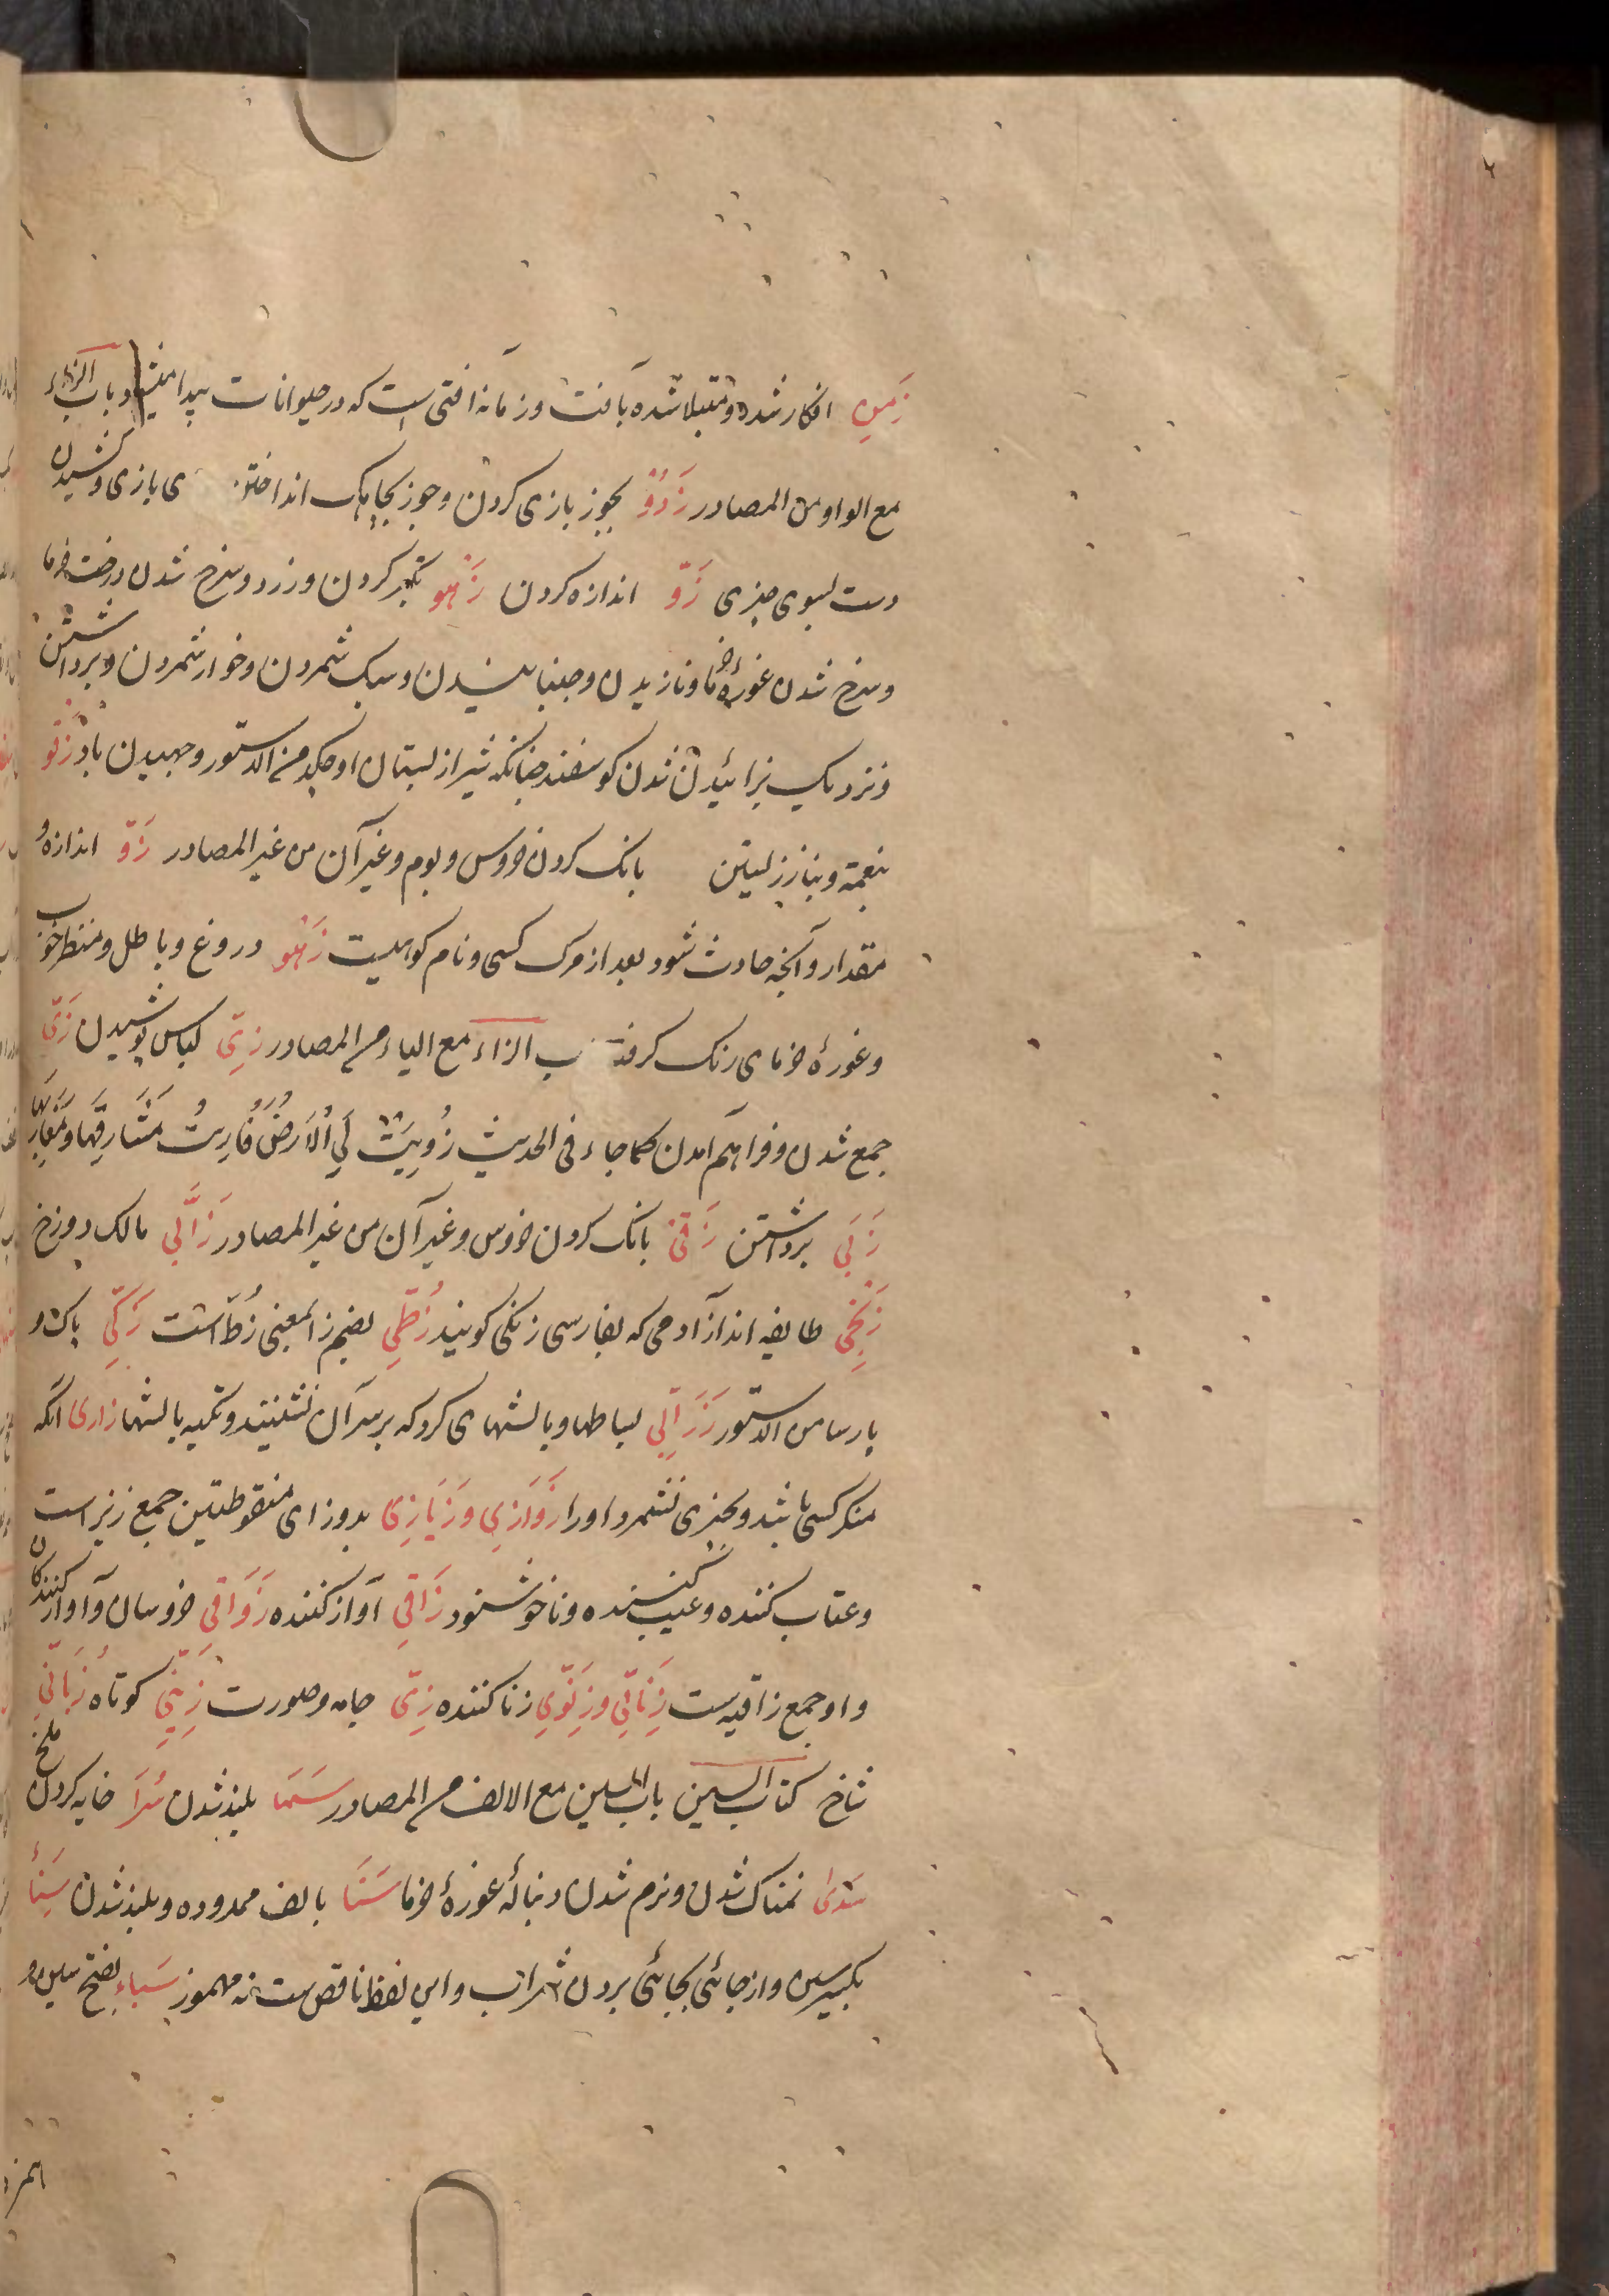 زَمِن افکار شده و مبتلا شده بآفت و زمانه افتی است که در حیوانات پیدا میشود باب الزاء
مع الواو من المصادر زَدْوْ بجوز بازی کردن و جوز بجاهک انداختن ی بازی و کشیدن
دست بسوی چیزی زَوّ اندازه کردن زَهْو تکبر کردن و زرد و سرخ شدن درخت خرما
و سرخ شدن غورهٔ خرما و نازیدن و جنبانیدن و سبک شمردن و خوار شمردن و برداشتن
و نزدیک بزائیدن شدن کوسفند چنانکه شیر از پستان او چکد من الدستور و جهیدن باد زَقْو
بنعمة و بناز زیستن بانک کردن خروس و بوم و غیر آن من غیر المصادر زَوّ اندازه و
مقدار و آنچه حادث شود بعد از مرک کسی و نام کوهیست زَهْو دروغ و باطل و منظر خوب
و غورهٔ خرمای رنک کرفته ب الزاء مع الیاء من المصادر زِیّ لباس پوشیدن زَیّ
جمع شدن و فراهم آمدن کما جاء فی الحدیث زُوِیَتْ لِیَ الْاَرضُ فَاُرِیتُ مَشَارِقَهَا وَ مَغَارِبَهَا
زَبْی برداشتن زَقْیْ بانک کردن خروس و غیر آن من غیر المصادر زَبَانِی مالک دوزخ
زَنْجِی طایفه اند از آدمی که بفارسی زنکی کویند زُطِّی بضم زا بمعنی زُطّ است زَکِیّ پاک و
پارسا من الدستور زَرَابِی بساطها و بالشهای کرد که بر سر آن نشینند و تکیه بالشها زاری آنکه
منکر کسی باشد و بچیزی نشمرد او را زَوَازِی وَ زَیَازِی بدو زای منقوطتین جمع زیزاست
و عتاب کننده و عیب کننده و ناخوشنود زَاقِی آواز کننده زَوَاقِی خروسان و آواز کنندکان
و او جمع زاقیه است زِنَائِی و زِنَوِی زنا کننده زِیّ جامه و صورت زِبَنِّی کوتاه زُبَانَی
شاخ کتاب السین باب السین مع الالف من المصادر سَمَا بلند شدن سَرَا خایه کردن ملخ
سَدی نمناک شدن و نرم شدن دنبالهٔ غورهٔ خرما سَنَا بالف ممدوده و بلند شدن سِبَاء
بکسر سین و از جائی بجائی بردن شراب و این لفظ ناقص است نه مهموز سَباء بفتح سین و